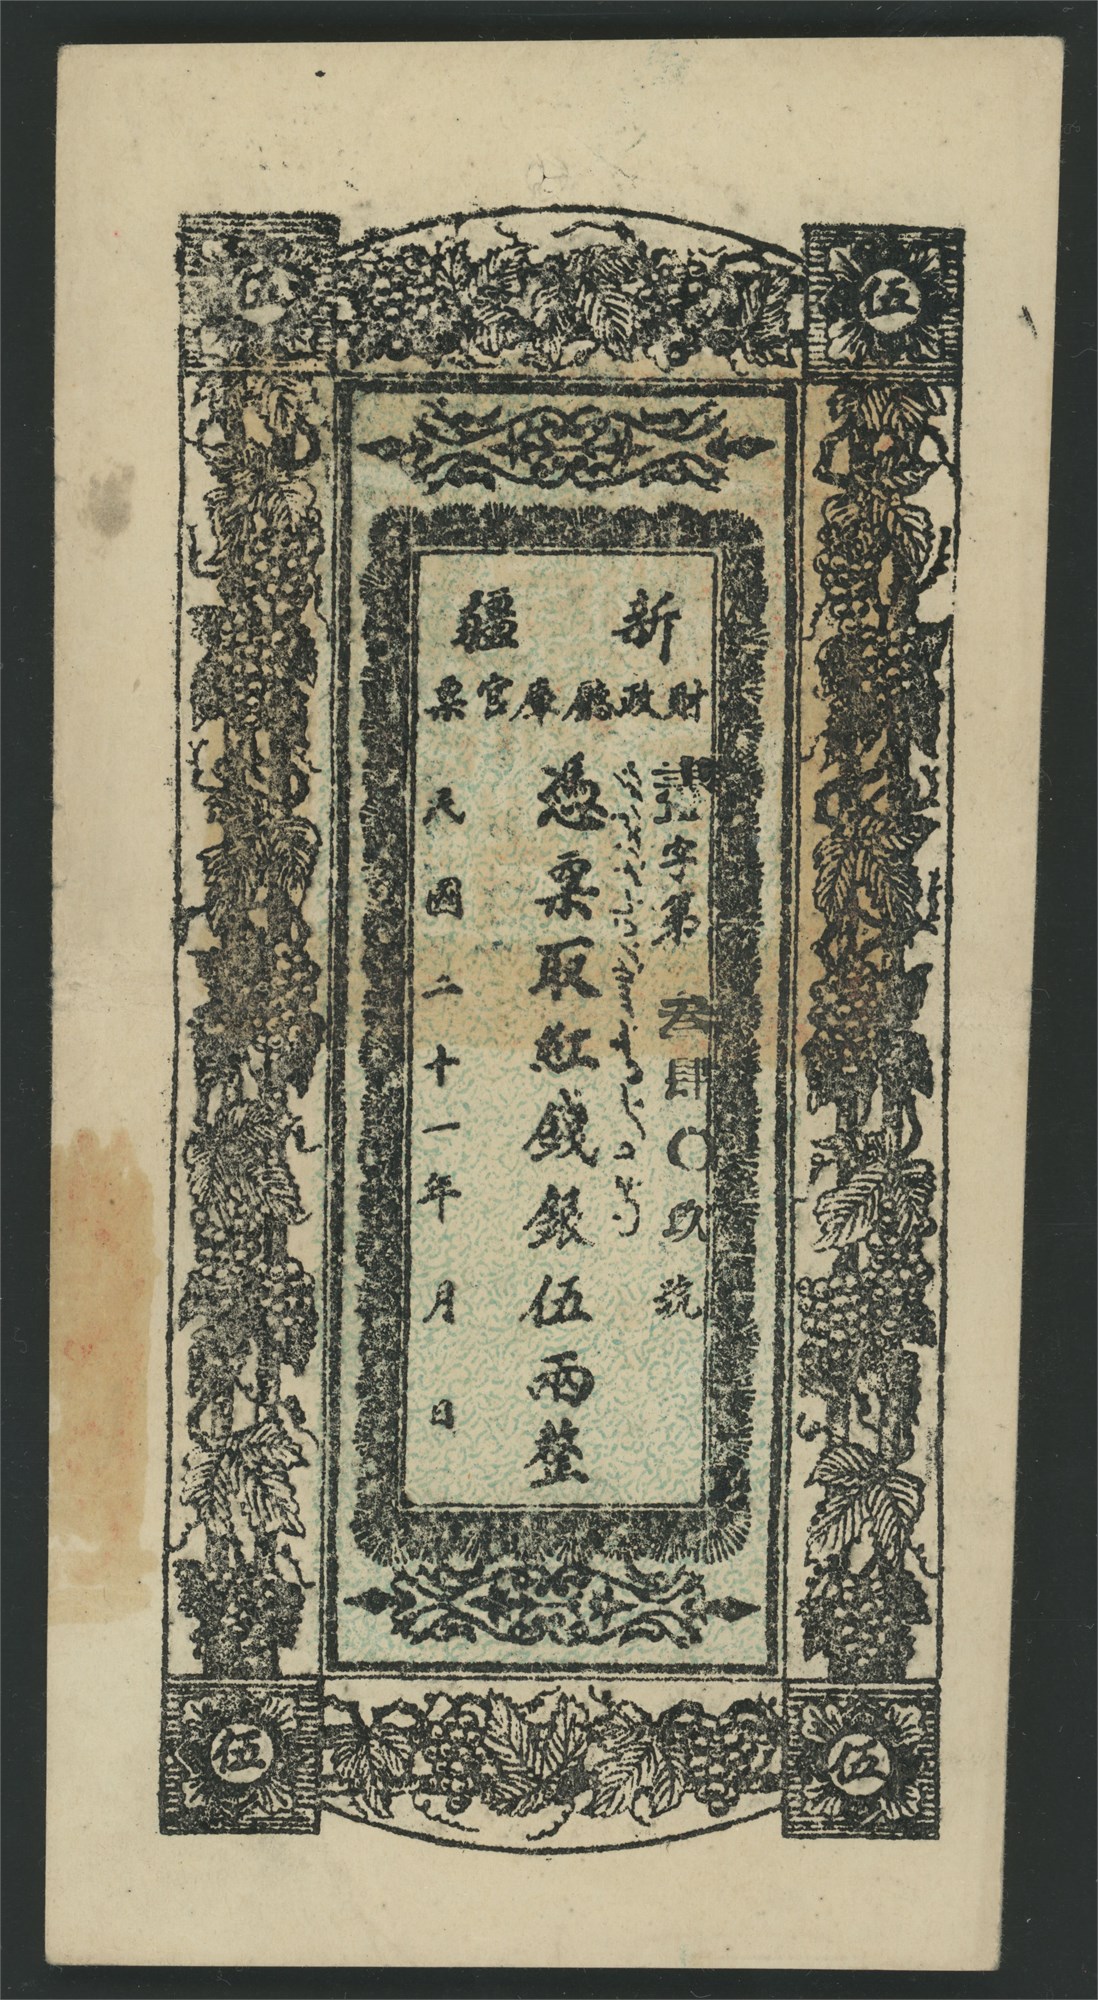 伍
伍
新疆
財政廳庫官票
字第叁肆〇玖號
憑票取紅錢銀伍兩整
民國二十一年月日
伍
伍